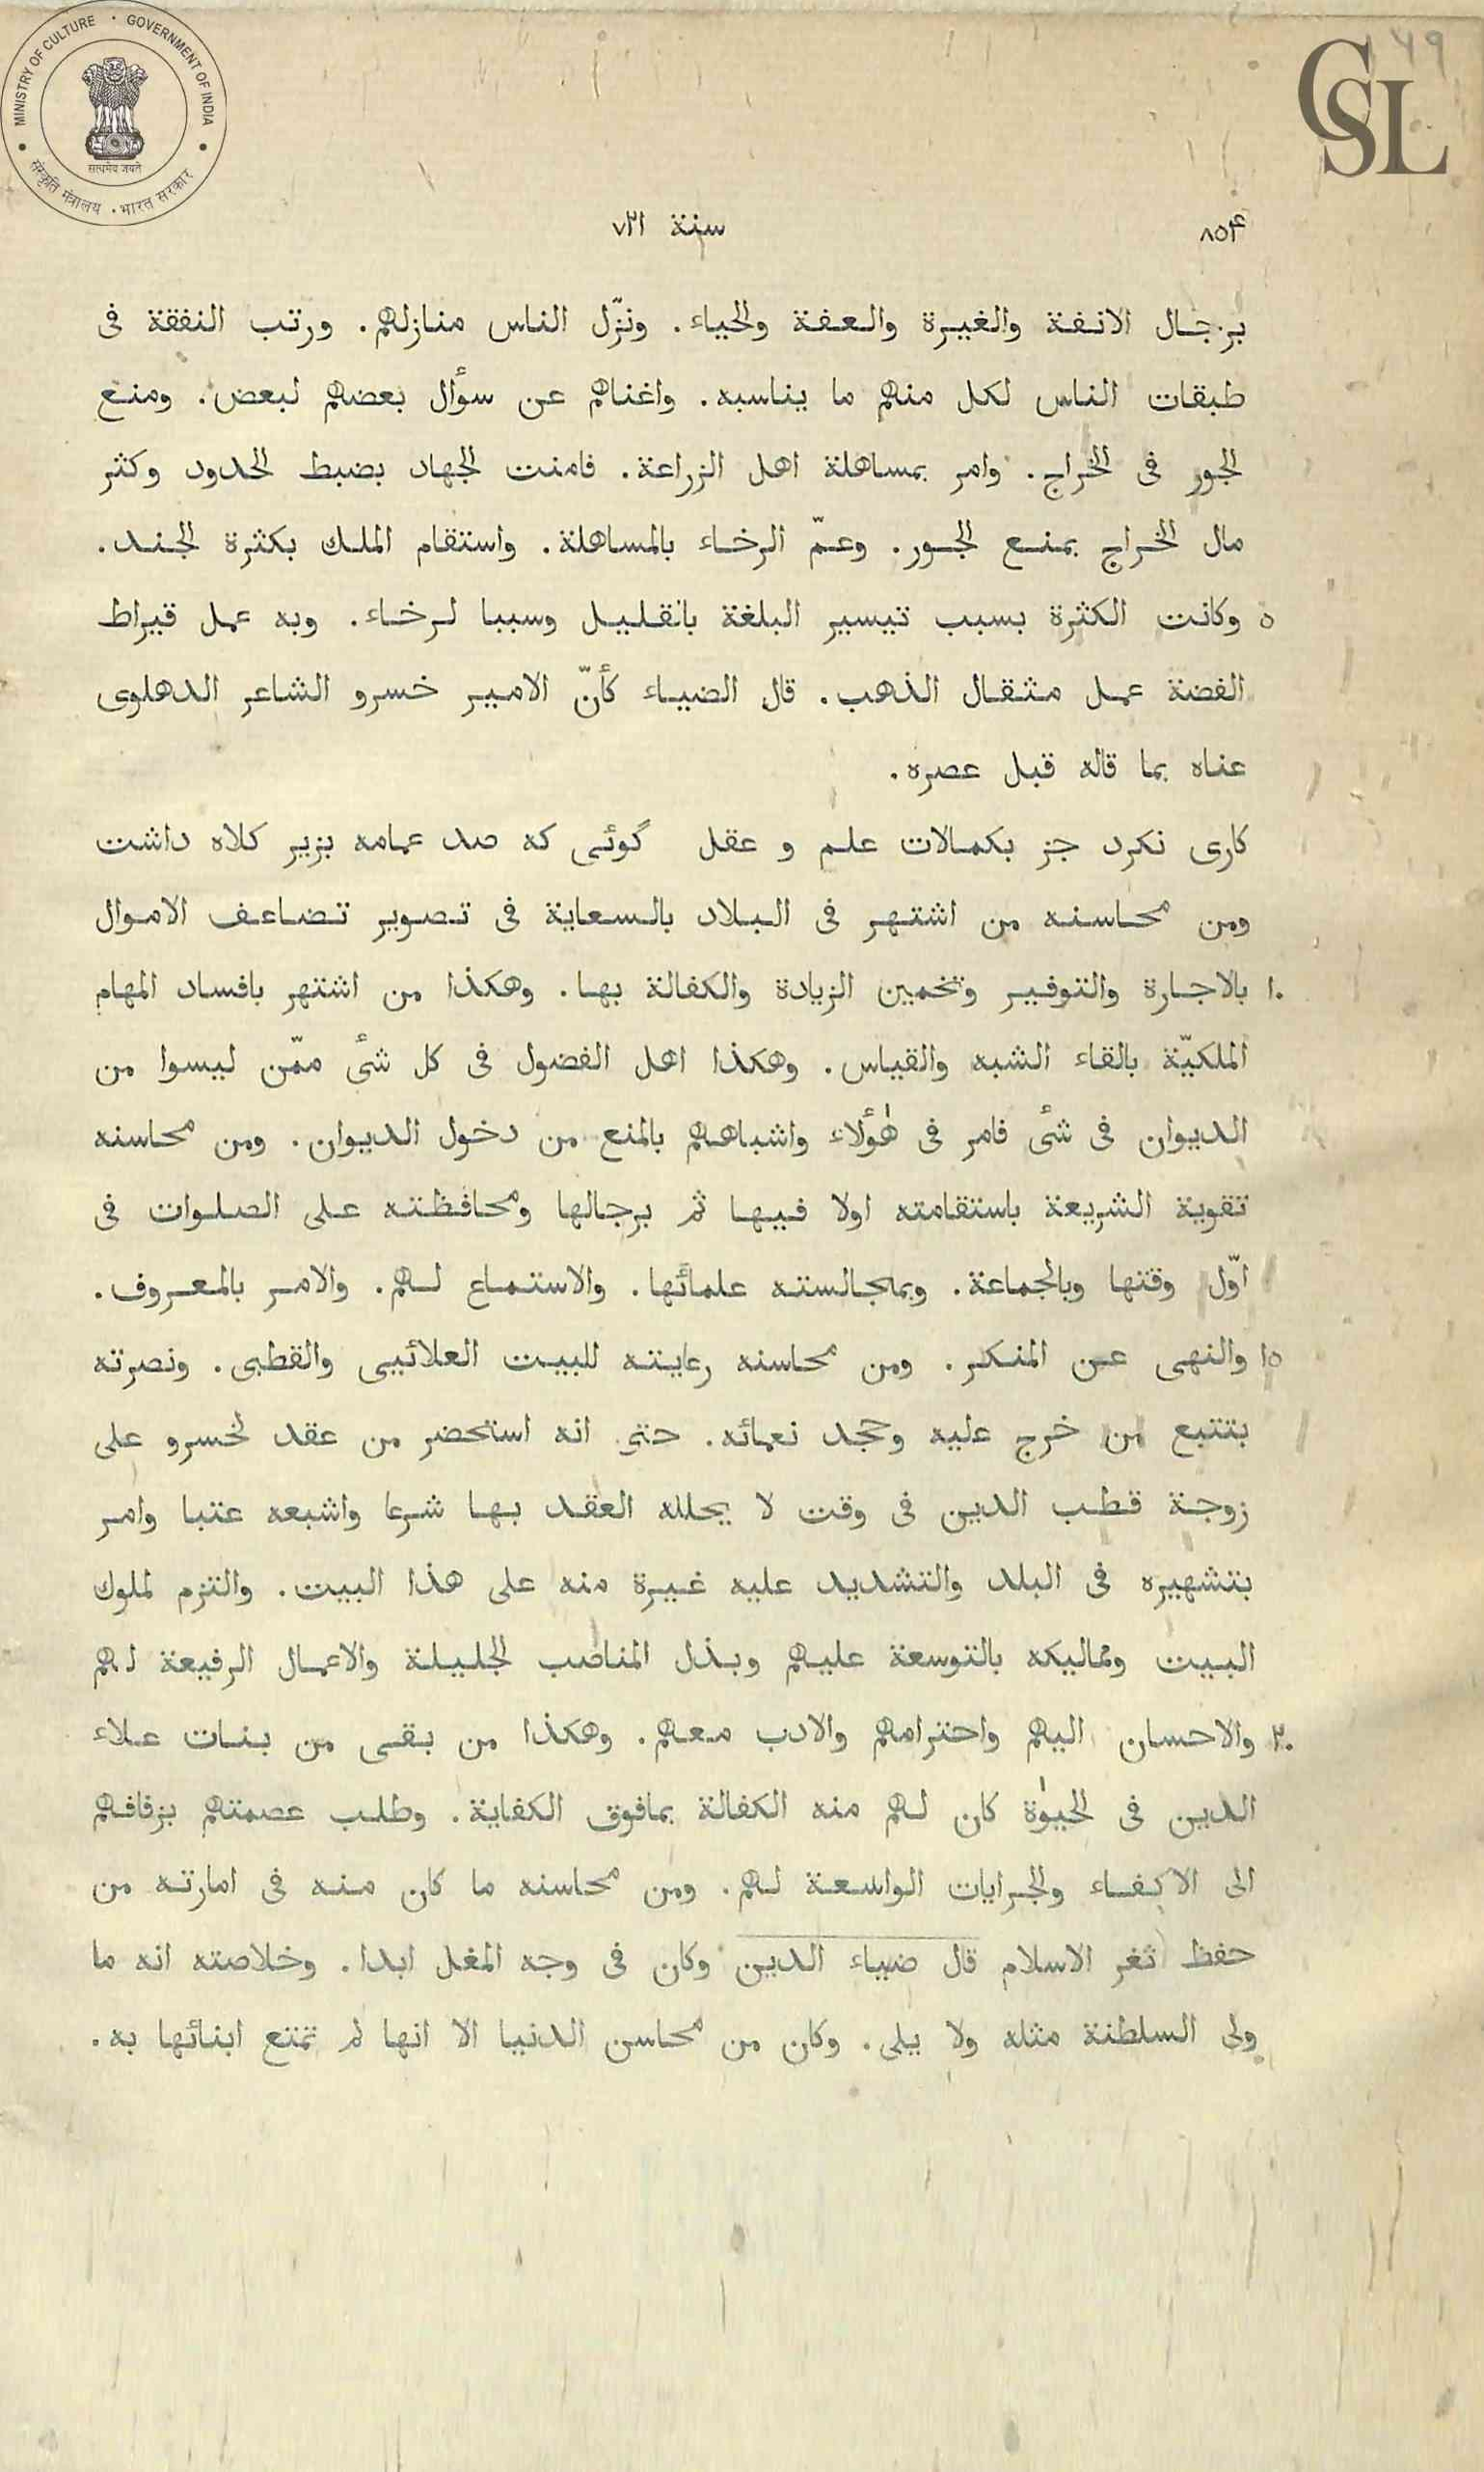 MINISTRY OF CULTURE · GOVERNMENT OF INDIA
सत्यमेव जयते
संस्कृति मंत्रालय · भारत सरकार
CSL
١٧٩
٨٥۴ سنة ٧٢١
برجال الانفة والغيرة والعفة والحياء. ونزّل الناس منازلهم. ورتب النفقة فى
طبقات الناس لكل منهم ما يناسبه. واغناهم عن سؤال بعضهم لبعض. ومنع
الجور فى الخراج. وامر بمساهلة اهل الزراعة. فامنت الجهاد بضبط الحدود وكثر
مال الخراج بمنع الجور. وعمّ الرخاء بالمساهلة. واستقام الملك بكثرة الجند.
٥ وكانت الكثرة بسبب تيسير البلغة بالقليل وسببا لرخاء. وبه عمل قيراط
الفضة عمل مثقال الذهب. قال الضياء كأنّ الامير خسرو الشاعر الدهلوى
عناه بما قاله قبل عصره.
كارى نكرد جز بكمالات علم و عقل گوئى كه صد عمامه بزير كلاه داشت
ومن محاسنه من اشتهر فى البلاد بالسعاية فى تصوير تضاعف الاموال
١٠ بالاجارة والتوفير وتخمين الزيادة والكفالة بها. وهكذا من اشتهر بافساد المهام
الملكيّة بالقاء الشبه والقياس. وهكذا اهل الفضول فى كل شئ ممّن ليسوا من
الديوان فى شئ فامر فى هٰؤلاء واشباههم بالمنع من دخول الديوان. ومن محاسنه
تقوية الشريعة باستقامته اولا فيها ثم برجالها ومحافظته على الصلوات فى
اوّل وقتها وبالجماعة. وبمجالسته علمائها. والاستماع لهم. والامر بالمعروف.
١٥ والنهى عن المنكر. ومن محاسنه رعايته للبيت العلائيى والقطبى. ونصرته
بتتبع من خرج عليه وجحد نعمائه. حتى انه استحضر من عقد لخسرو على
زوجة قطب الدين فى وقت لا يحلله العقد بها شرعا واشبعه عتبا وامر
بتشهيره فى البلد والتشديد عليه غيرة منه على هذا البيت. والتزم لملوك
البيت ومماليكه بالتوسعة عليهم وبذل المناصب الجليلة والاعمال الرفيعة لهم
٢٠ والاحسان اليهم واحترامهم والادب معهم. وهكذا من بقى من بنات علاء
الدين فى الحيوٰة كان لهم منه الكفالة بمافوق الكفاية. وطلب عصمتهم بزفافهم
الى الاكفاء والجرايات الواسعة لهم. ومن محاسنه ما كان منه فى امارته من
حفظ ثغر الاسلام قال ضياء الدين وكان فى وجه المغل ابدا. وخلاصته انه ما
ولى السلطنة مثله ولا يلى. وكان من محاسن الدنيا الا انها لم تمتع ابنائها به.